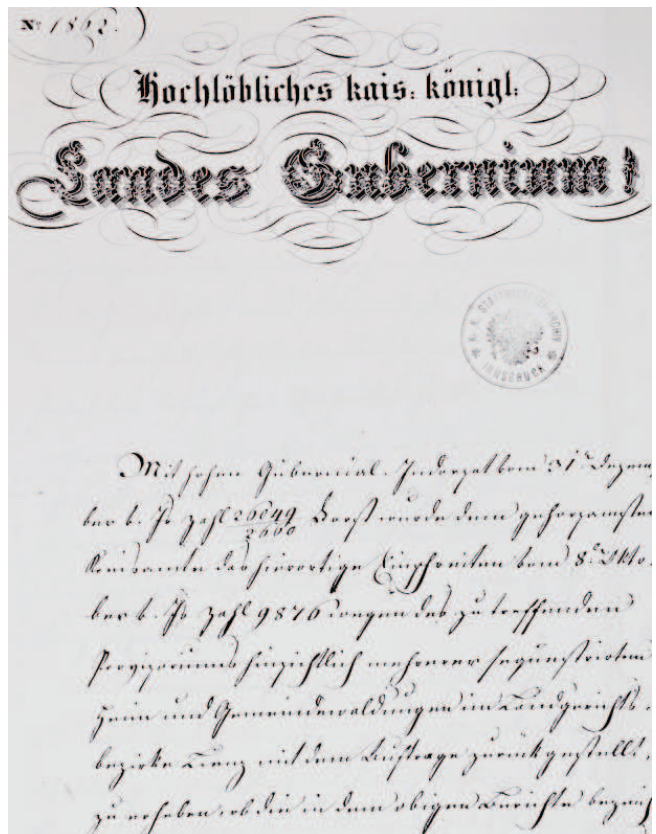 Nr 1862.
Hochlöbliches kais: königl:
Landes Gubernium!
K. K. STATTHALTEREI-ARCHIV
* INNSBRUCK *
Mit hohen Gubernial-Indorsat vom 31t Dezem,
ber v. Js Zahl 26649/2600 Forst wurde dem gehorsamsten
Kreisamte das hierortige Einschreiten vom 8t Okto,
ber v. Js Zahl 9876 wegen des zu treffenden
Provisoriums hinsichtlich mehrerer sequestrirten
Heim und Gemeindewaldungen im Landgerichts,
bezirke Lienz mit dem Auftrage zurückgestellt,
zu erheben, ob die in dem obigen Berichte bezeich